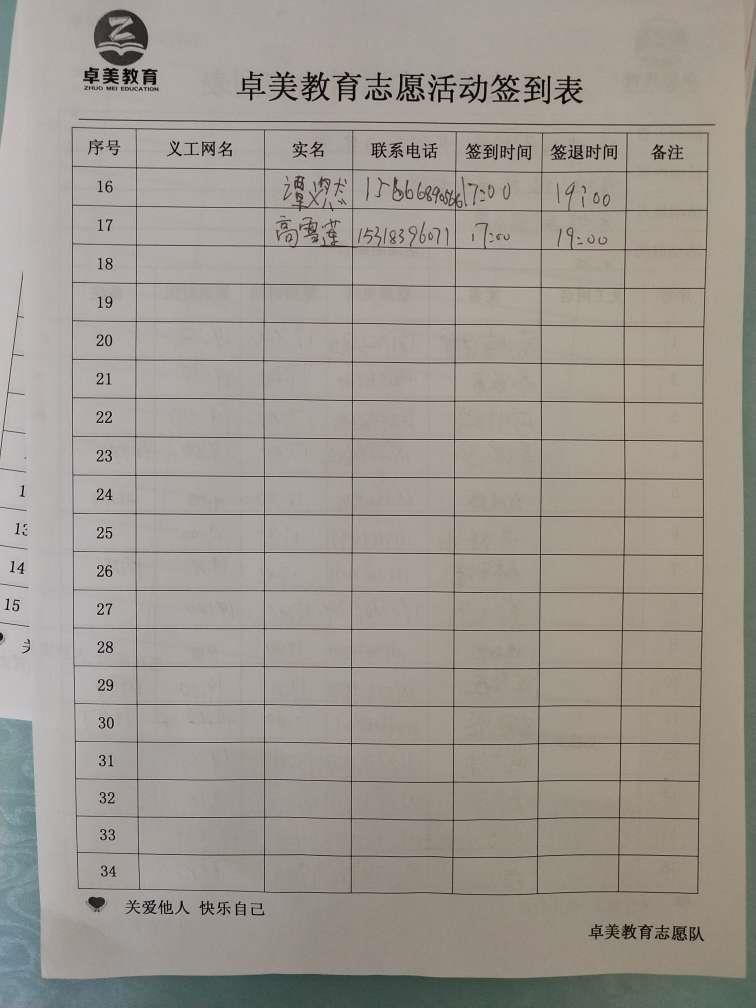 卓美教育
ZHUO MEI EDUCATION
卓美教育志愿活动签到表
序号 义工网名 实名 联系电话 签到时间 签退时间 备注
16 17:00 19:00
17 高雪莲 15318396071 17:00 19:00
18
19
20
21
22
23
24
25
26
27
28
29
30
31
32
33
34
关爱他人 快乐自己
卓美教育志愿队
13
14
15